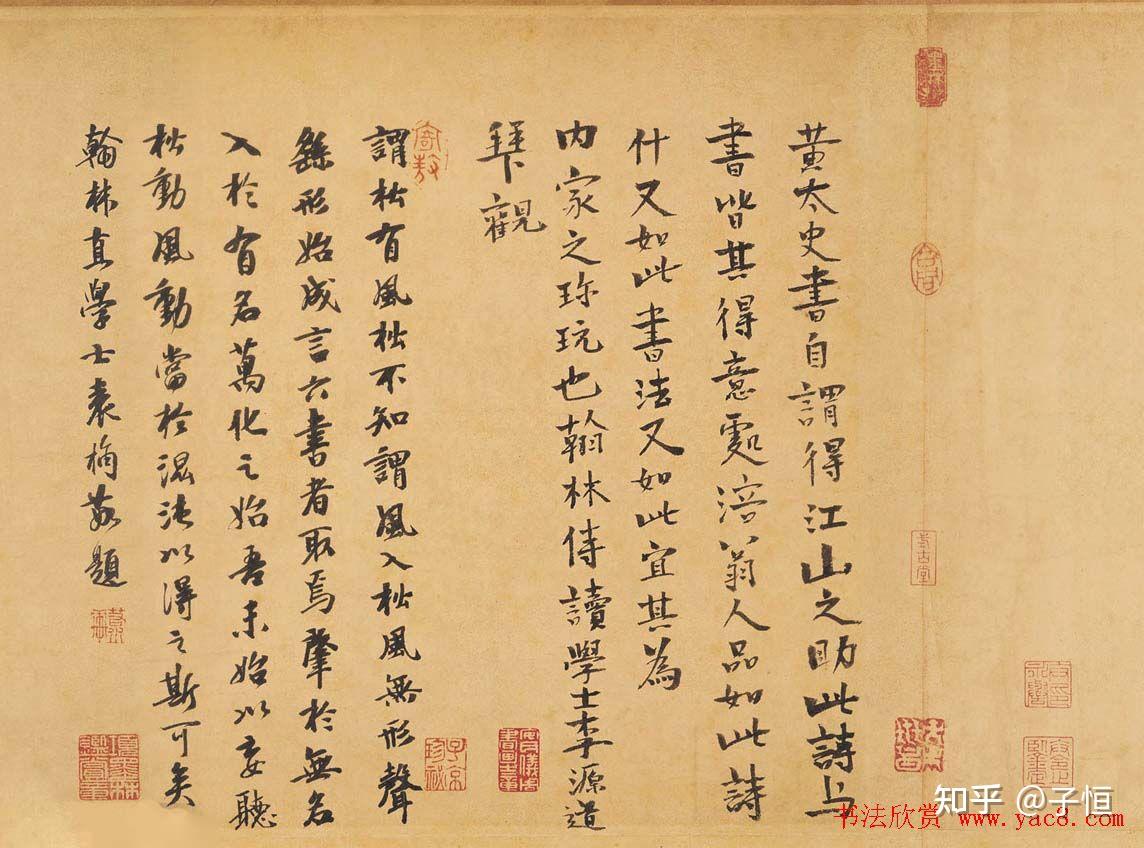 黃太史書自謂得江山之助此詩与
書皆其得意處涪翁人品如此詩
什又如此書法又如此宜其為
內家之珎玩也翰林侍讀學士李源道
拜觀
謂松有風松不知謂風入松風無形聲
繇形始成言六書者取焉肇於無名
入於有名萬化之始吾未始以妄聽
松動風動當於混沌以得之斯可矣
翰林直學士袁桷敬題
子京
珍祕
知乎 @子恒
书法欣赏 www.yac8.com